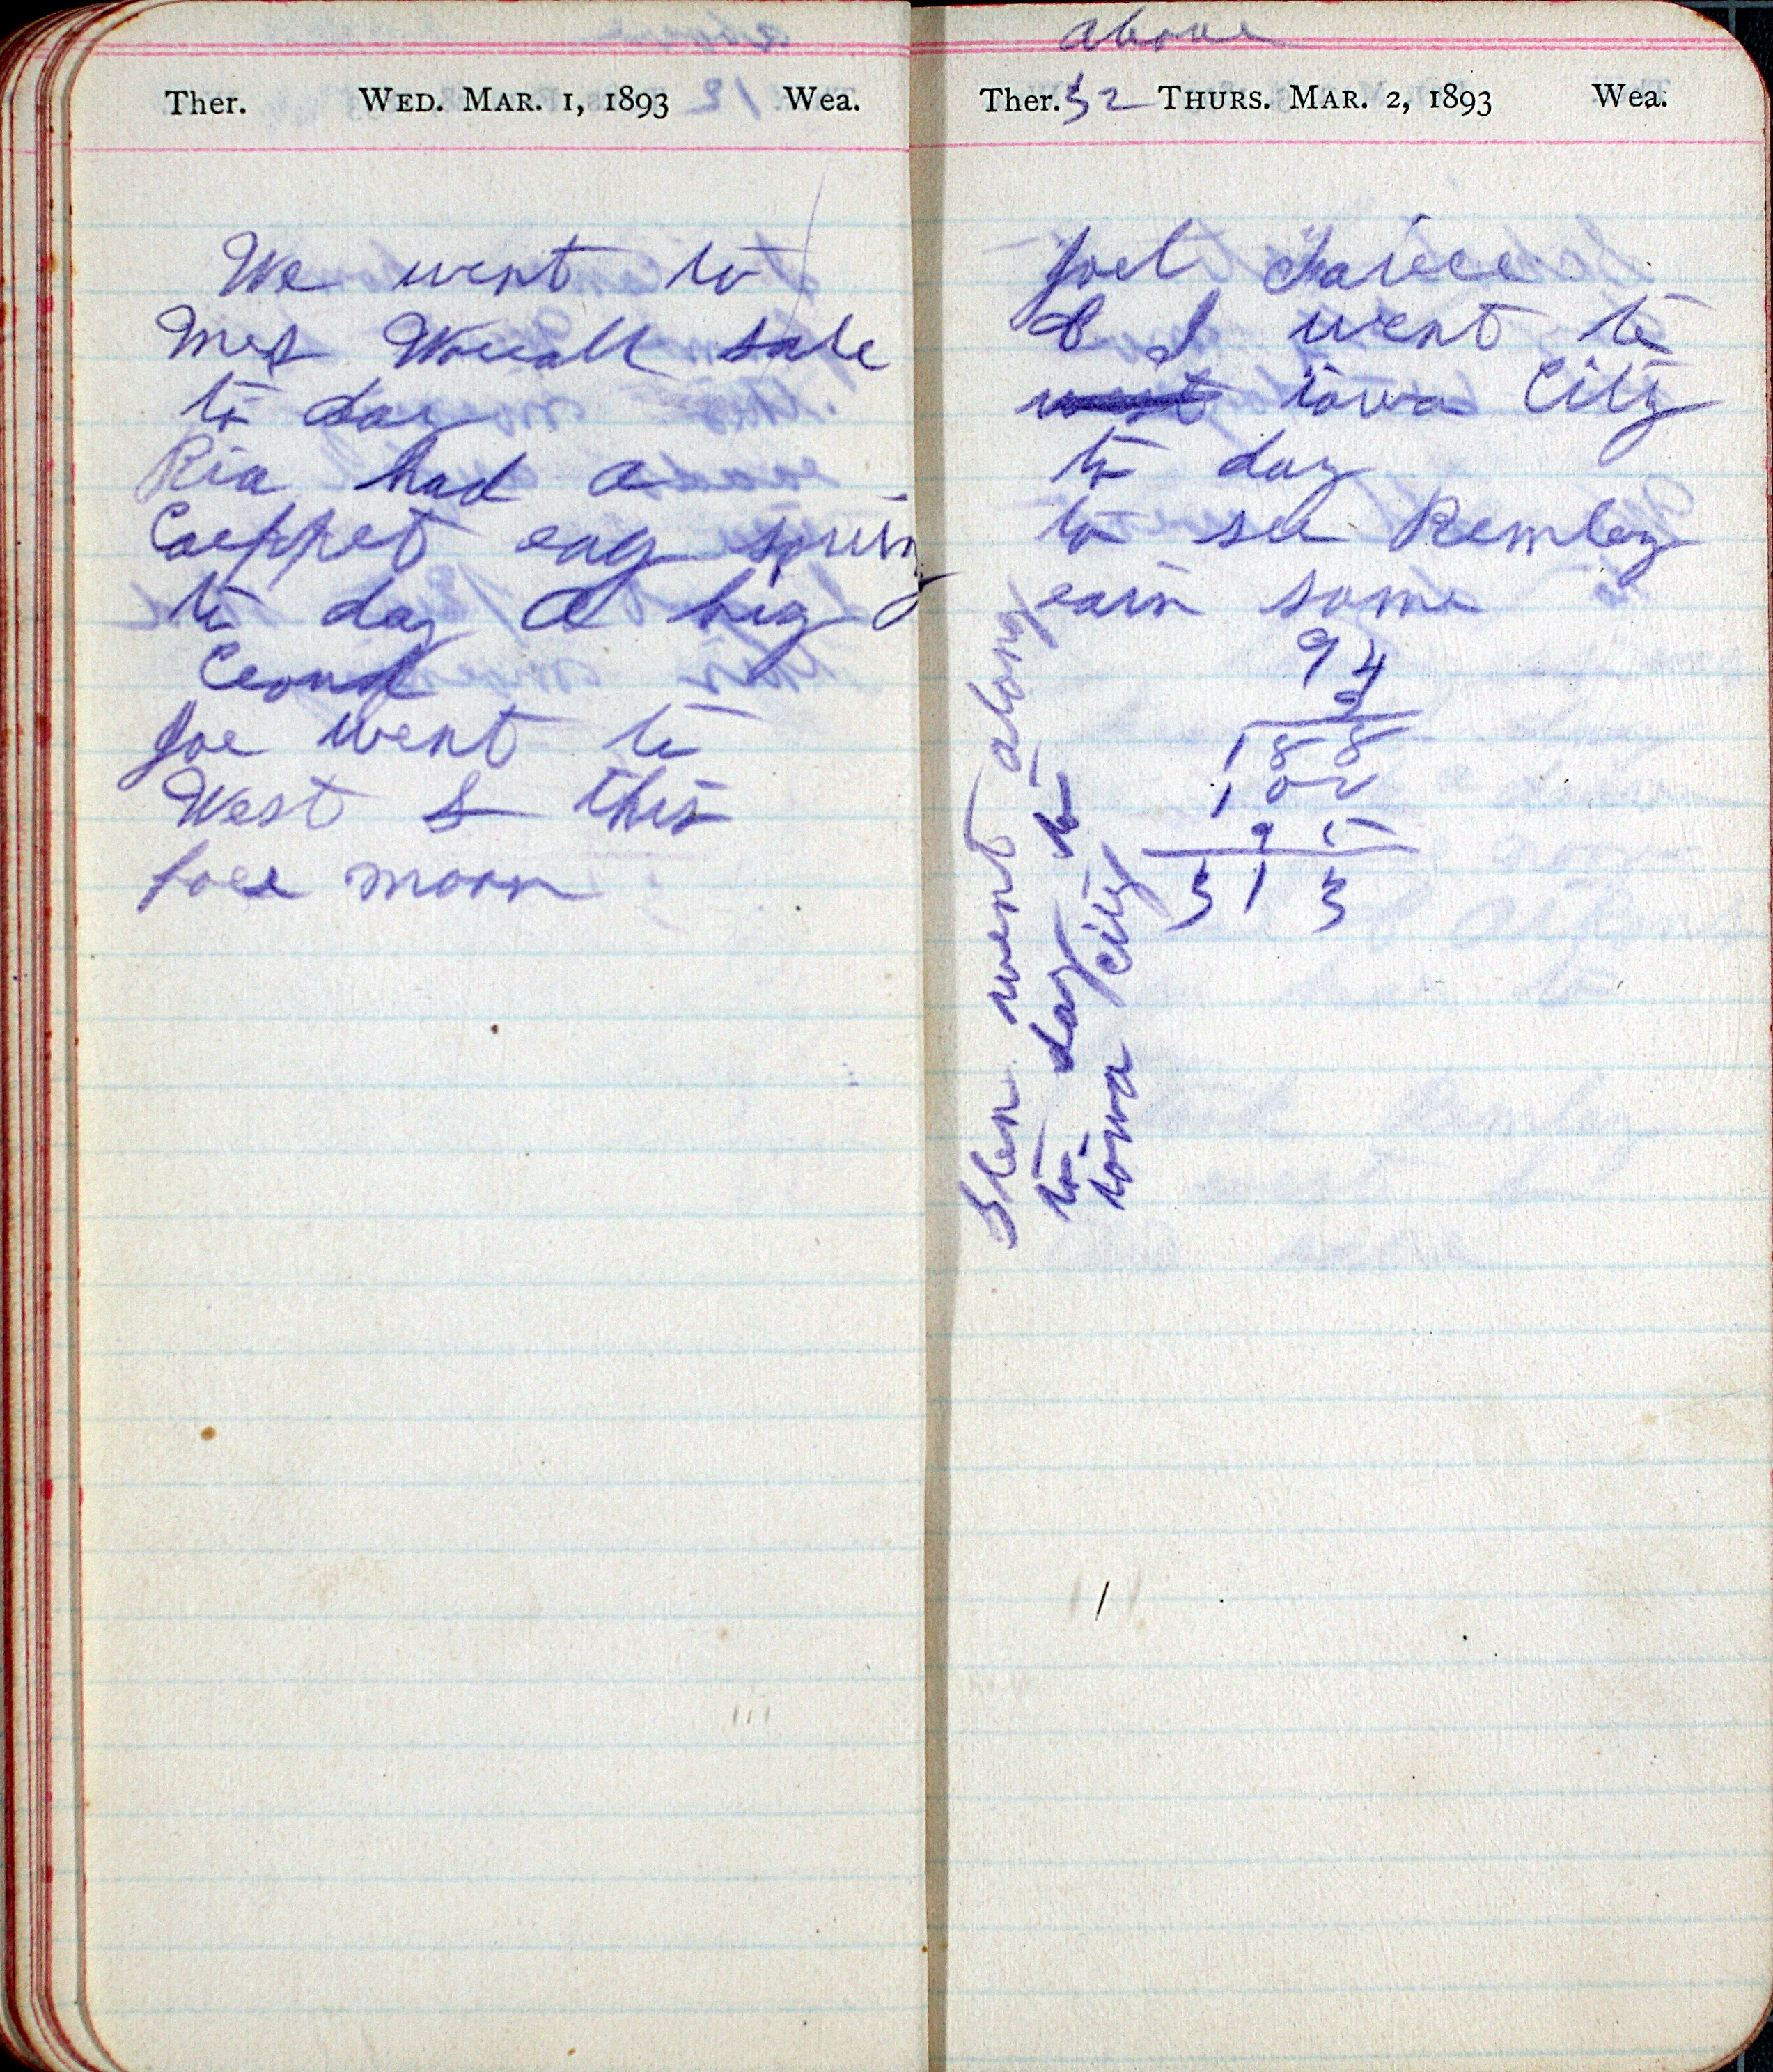 Ther. WED. MAR. 1, 1893 Wea.
We went to
Mrs Worrall sale
to day
Ria had a
Carppet rag
to day a big
Croud
Joe went to
West L this
fore moon
above
Ther. 32 THURS. MAR. 2, 1893 Wea.
Joel
& I went to
went iowa City
to day
to see Remley
rain some
94
2
188
102
95
313
Glen went along
to day to
iowa City